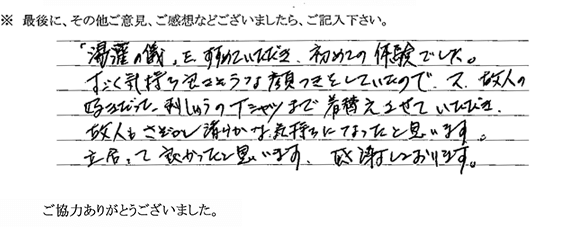 ※ 最後に、その他ご意見、ご感想などございましたら、ご記入下さい。
「湯灌の儀」を、すすめていただき、初めての体験でした。
すごく気持ち良さそうな顔つきをしていたので、又、故人の
好きだった、刺しゅうのTシャツまで着替えさせていただき、
故人もさぞかし清らかな気持ちになったと思います。
立居って良かったと思います、感謝しております。
ご協力ありがとうございました。